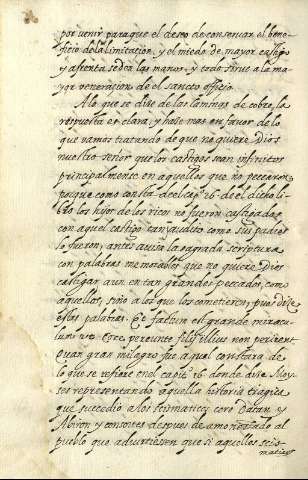 por venir para que el deseo de conseruar el bene-
ficio de la limitacion, y el miedo de mayor castigo
y afrenta se den las manos, y todo sirue a la ma
yor veneracion de el sancto officio.
A lo que se dize de las laminas de cobre, la
respuesta es clara, y haze mas en fauor de lo
que vamos tratando de que no quiere Dios
nuestro señor que los castigos sean infinitos
principalmente en aquellos que no peccaron
porque como consta de el cap. 26. de el dicho li-
bro los hijos de los reos no fueron castigados
con aquel castigo tan inaudito como sus padres
lo fueron, antes auisa la sagrada scriptura
con palabras memorables que no quiere Dios
castigar aun en tan grandes peccados, como
aquellos, sino a los que los cometieron, pues dize
estas palabras. Et factum est grande miracu-
lum vt Core pereunte filij illius non perirent
quan gran milagro fue aqual constara de
lo que se refiere en el capit. 16. donde dize Moy-
ses representando aquella historia tragica
que succedio a los scismaticos core Datan, y
Abiron y consortes despues de amonestado al
pueblo que aduirtiessen que si aquellos scis-
maticos